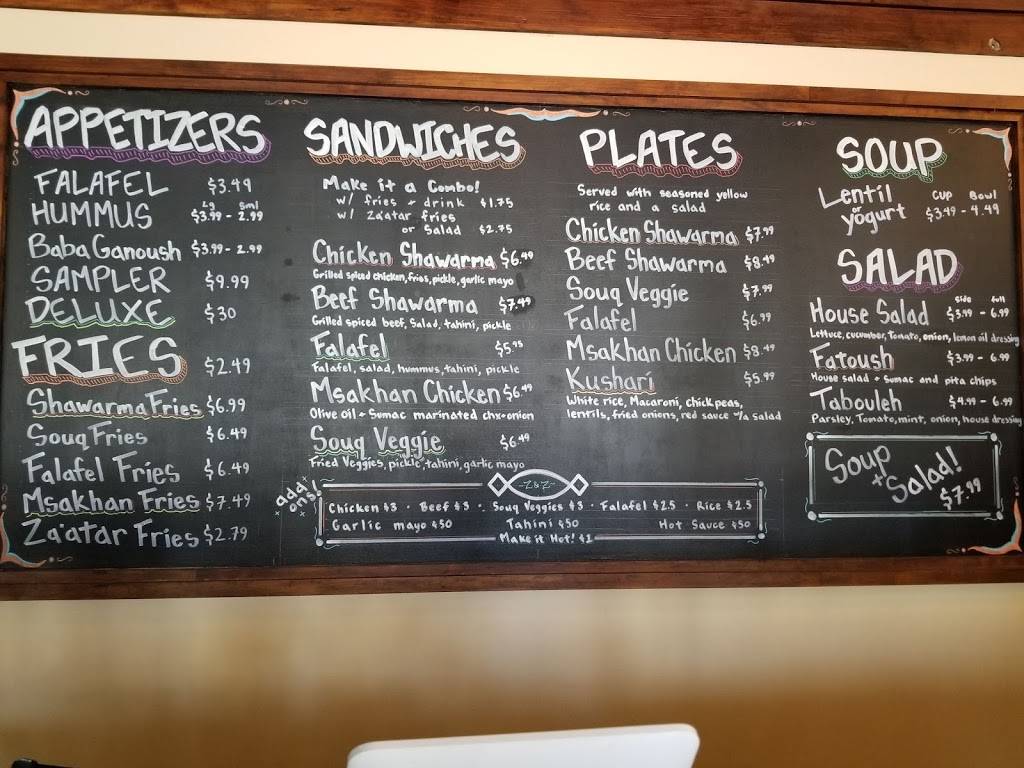 APPETIZERS
FALAFEL $3.49
Lg Sml
HUMMUS $3.99 - 2.99
Baba Ganoush $3.99 - 2.99
SAMPLER $9.99
DELUXE $30
FRIES $2.49
Shawarma Fries $6.99
Souq Fries $6.49
Falafel Fries $6.49
Msakhan Fries $7.49
Za'atar Fries $2.79
SANDWICHES
Make it a Combo!
w/ fries + drink $1.75
w/ Za'atar fries
or Salad $2.75
Chicken Shawarma $6.49
Grilled spiced chicken, fries, pickle, garlic mayo
Beef Shawarma $7.49
Grilled spiced beef, Salad, tahini, pickle
Falafel $5.95
Falafel, salad, hummus, tahini, pickle
Msakhan Chicken $6.49
Olive oil + Sumac marinated chx + onion
Souq Veggie $6.49
Fried Veggies, pickle, tahini, garlic mayo
PLATES
Served with seasoned yellow
rice and a salad
Chicken Shawarma $7.99
Beef Shawarma $8.49
Souq Veggie $7.99
Falafel $6.99
Msakhan Chicken $8.49
Kushari $5.99
White rice, Macaroni, chick peas,
lentils, fried onions, red sauce w/a salad
add ons!
~Z&Z~
Chicken $3 · Beef $3 · Souq Veggies $3 · Falafel $2.5 · Rice $2.5
Garlic mayo $50 Tahini $50 Hot Sauce $50
Make it Hot! $1
SOUP
Lentil or yogurt
Cup Bowl
$3.49 - 4.49
SALAD
side full
House Salad $3.99 - 6.99
Lettuce, cucumber, Tomato, onion, lemon oil dressing
Fatoush $3.99 - 6.99
House salad + sumac and pita chips
Tabouleh $4.99 - 6.99
Parsley, Tomato, mint, onion, house dressing
Soup + Salad!
$7.99